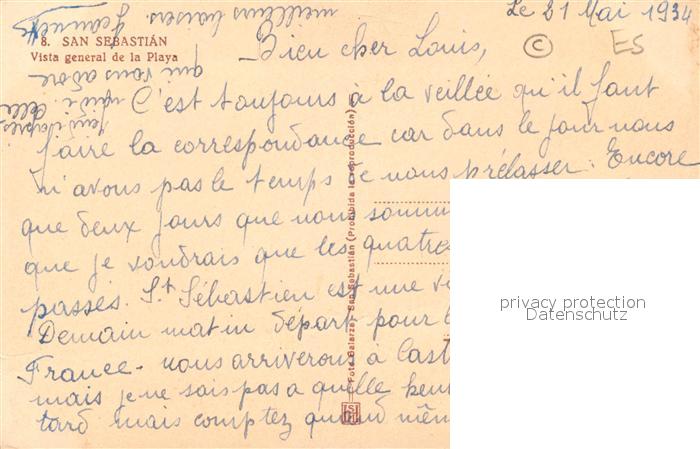 Le 21 Mai 1934
© ES
8. SAN SEBASTIÁN
Vista general de la Playa
Bien cher Louis,
C'est toujours à la veillée qu'il faut
faire la correspondance car dans le jour nous
n'avons pas le temps de nous prélasser. Encore
que deux jours que nous somm
que je voudrais que les quatres
passés. St Sébastien est une vi
Demain matin départ pour l
France. nous arriverons à Cast
mais je ne sais pas a quelle heu
tard mais comptez quand mêm
après
qui vous adore
meilleurs baisers
Jeannette
Foto Galarza. San Sebastián (Prohibida la reproducción)
privacy protection
Datenschutz